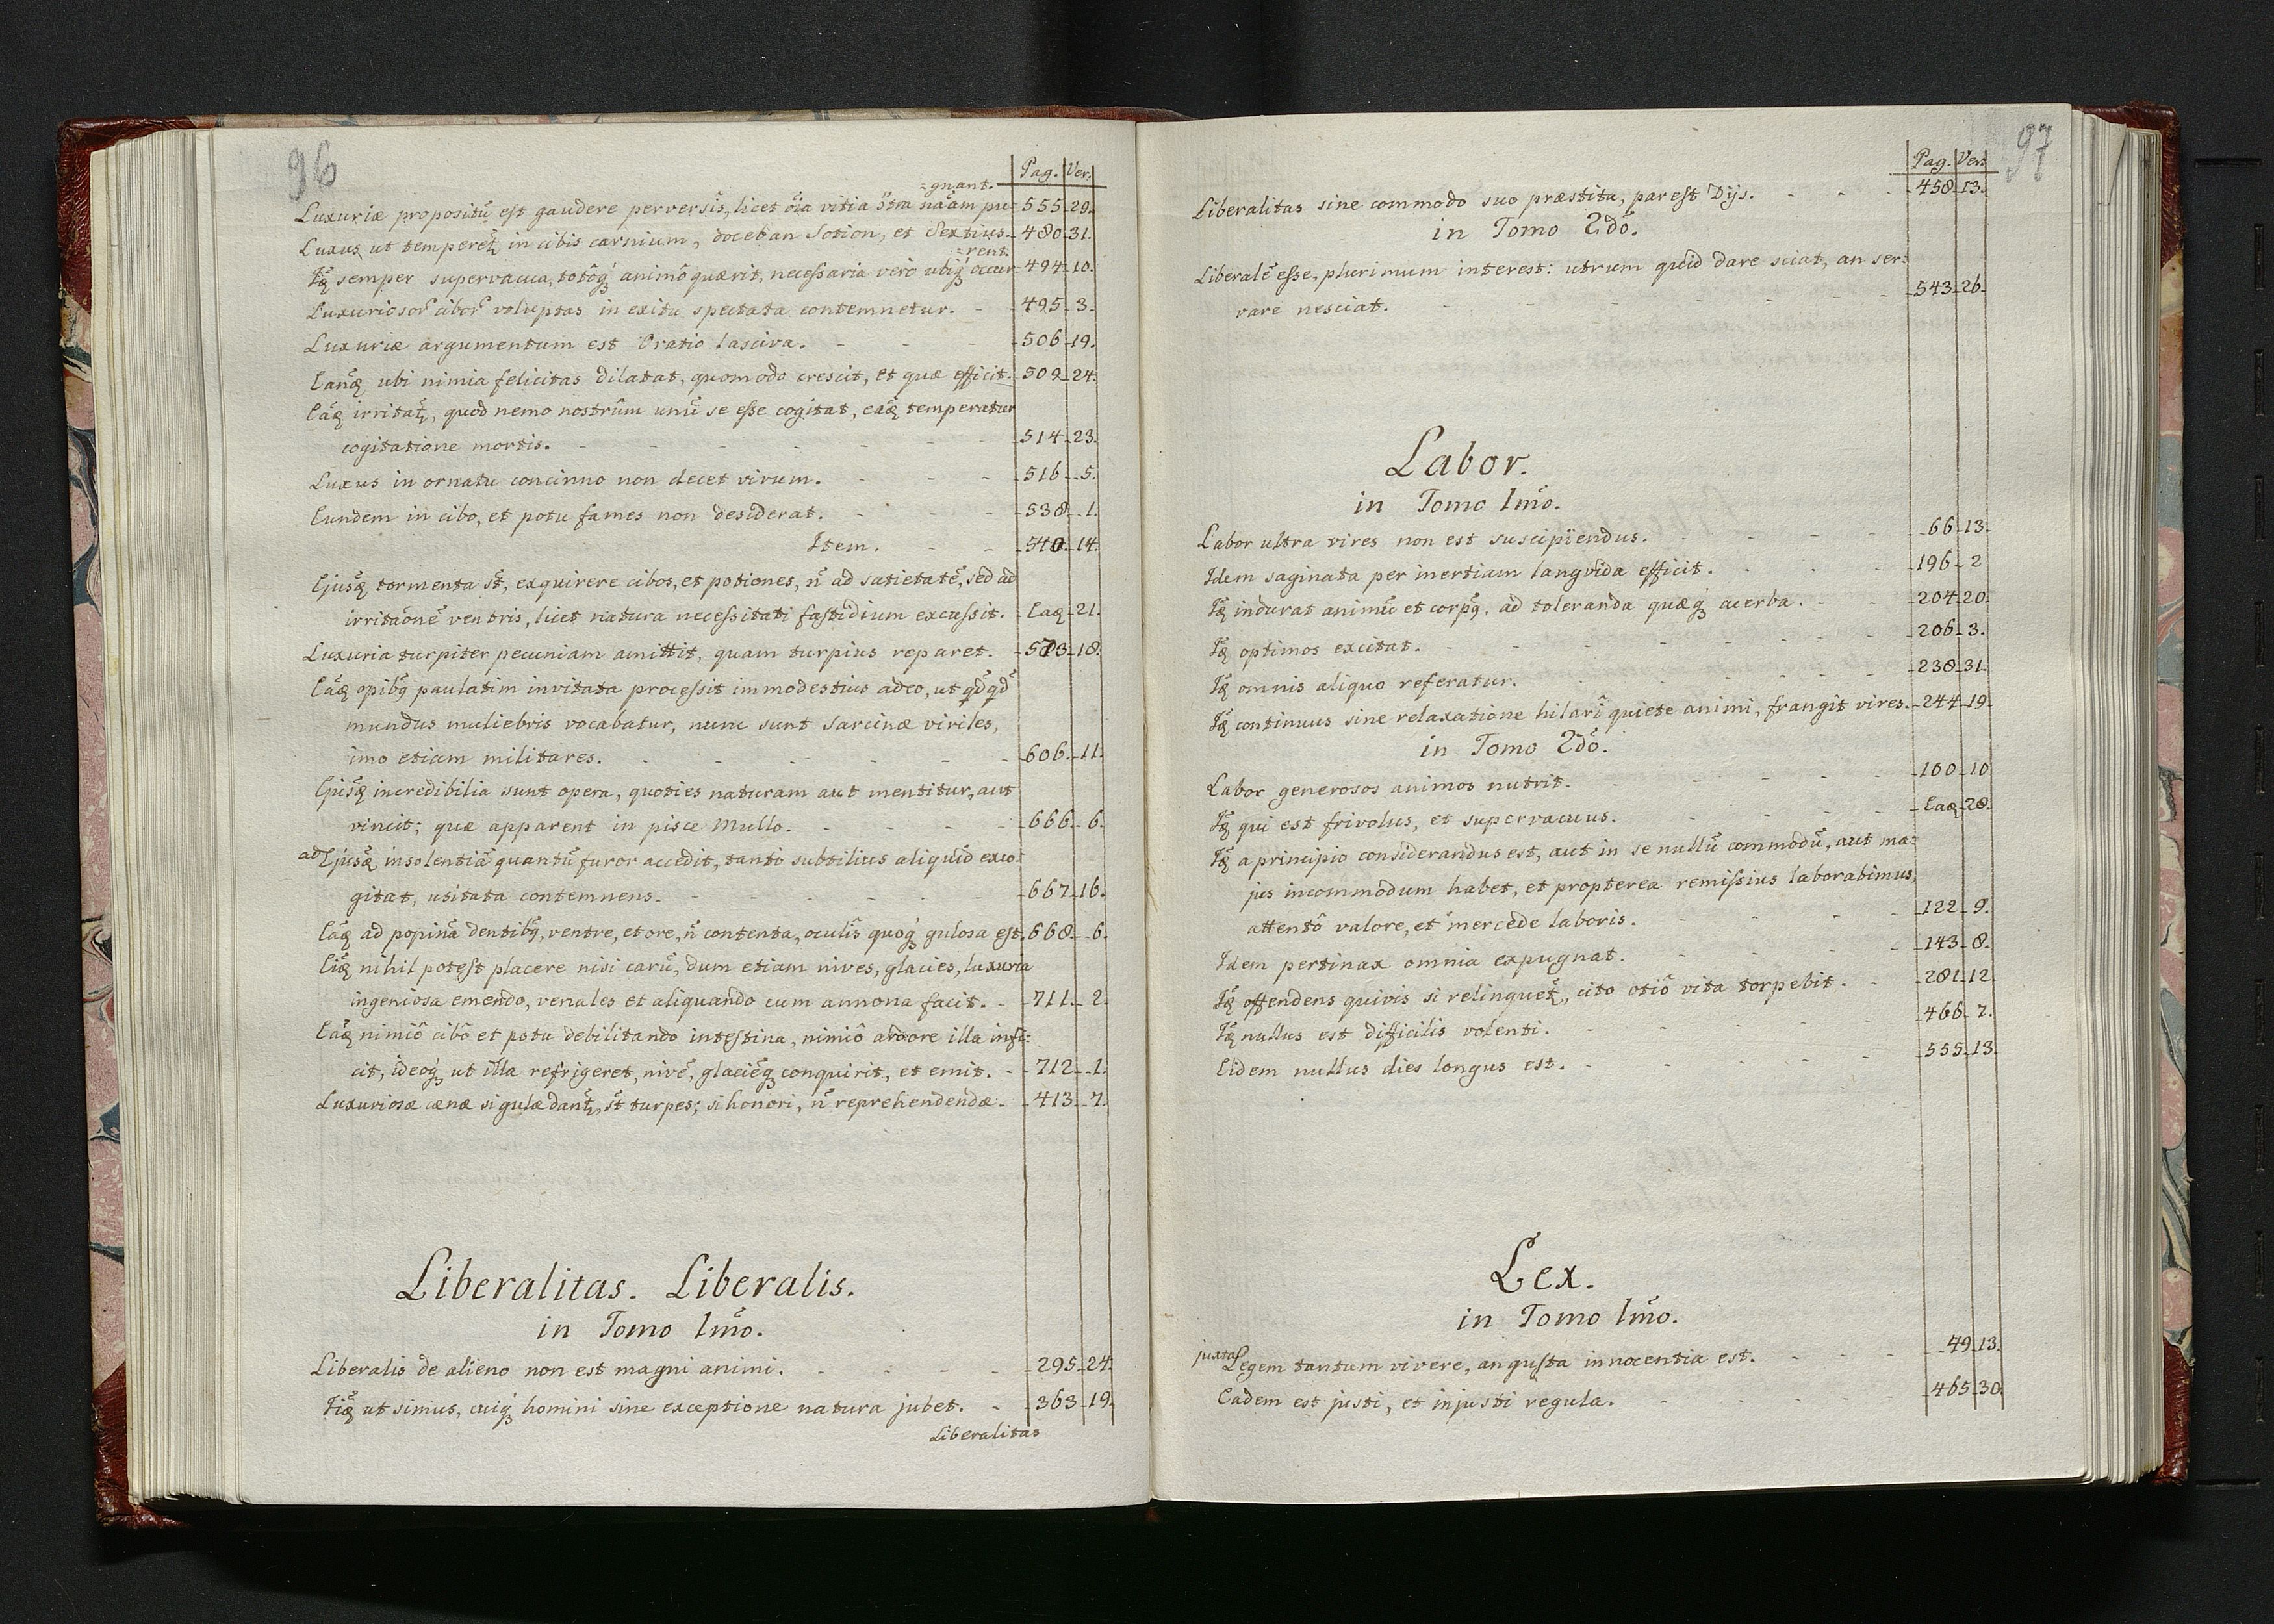 96
Pag. Ver.
=gnant.
Luxuriæ propositũ est gaudere perversis, licet õia vitia õtra nãam pu= 555. 29.
Luxus ut temperet̃ in cibis carnium, doceban Sotion, et Sextius. 480. 31.
=rent.
semper supervacua, totôq́ animô quærit, necessaria verò ubiq́ occur= 494. 10.
Luxuriosor̃ cibor̃ voluptas in exitu spectata contemnetur. - 495. 3.
Luxuriæ argumentum est Oratio lasciva. - - - 506. 19.
ubi nimia felicitas dilatat, quomodo crescit, et quæ efficit. 509. 24.
irritat̃, quod nemo nostrûm unũ se esse cogitat, temperatur
cogitatione mortis. - - - - - - 514. 23.
Luxus in ornatu concinno non decet virum. - - - 516. 5.
Eundem in cibo, et potu fames non desiderat. - - - 538. 1.
Item. - - 540. 14.
tormenta st̃, exquirere cibos, et potiones, ñ ad satietatẽ, sed ad
irritãonẽ ventris, licet natura necessitati fastidium excussit. - 21.
Luxuria turpiter pecuniam amittit, quam turpius reparet. - 573. 18.
opibq̃ paulatim invitata processit immodestius adeo, ut qd̃qd̃
mundus muliebris vocabatur, nunc sunt sarcinæ viriles,
imo etiam militares. - - - - - - 606. 11.
incredibilia sunt opera, quoties naturam aut mentitur, aut
vincit; quæ apparent in pisce Mullo. - - - - 666. 6.
ad insolentiã quantũ furor accedit, tantò subtilius aliquid exco=
gitat, usitata contemnens. - - - - - 667. 16.
ad popinã dentibq̃, ventre, et ore, ñ contenta, oculis quoq́ gulosa est. 668. 6.
nihil potest placere nisi carũ, dum etiam nives, glacies, luxuria
ingeniosa emendo, venales et aliquando cum annona facit. - 711. 2.
nimiô cibô et potu debilitando intestina, nimiô ardore illa infi=
cit, ideoq́ ut illa refrigeret, nivẽ, glaciẽq́ conquirit, et emit. - 712. 1.
Luxuriosæ cænæ si gulæ dant̃, st̃ turpes; si honori, ñ reprehendendæ. 413. 7.
Liberalitas. Liberalis.
in Tomo 1mõ.
Liberalis de alieno non est magni animi. - - - - 295. 24.
ut simus, cuiq́ homini sine exceptione natura jubet. - 363. 19.
Liberalitas
97
Pag. Ver.
Liberalitas sine commodo suo præstita, par est Dijs. - - - 458. 13.
in Tomo 2dõ.
Liberalẽ esse, plurimum interest: utrum quid dare sciat, an ser=
vare nesciat. - - - - - - - 543. 26.
Labor.
in Tomo 1mõ.
Labor ultra vires non est suscipiendus. - - - - 66. 13.
Idem saginata per inertiam langvida efficit. - - - 196. 2
indurat animũ et corpq̃. ad toleranda quæq́ acerba. - - 204. 20.
optimos excitat. - - - - - - 206. 3.
omnis aliquo referatur. - - - - - 238. 31.
continuus sine relaxatione hilari quiete animi, frangit vires. 244. 19.
in Tomo 2dõ.
Labor generosos animos nutrit. - - - - - 100. 10
qui est frivolus, et supervacuus. - - - - 28.
a principio considerandus est, aut in se nullũ commodũ, aut ma=
jus incommodum habet, et propterea remissius laborabimus,
attentô valore, et mercede laboris. - - - - 122. 9.
Idem pertinax omnia expugnat. - - - - - 143. 8.
offendens quivis si relinquet̃, cito otiô vita torpebit. - 281. 12.
nullus est difficilis volenti. - - - - - 466. 7.
Eidem nullus dies longus est. - - - - - 555. 13.
Lex.
in Tomo 1mõ.
juxta Legem tantum vivere, angusta innocentia est. - - - 49. 13.
Eadem est justi, et injusti regula. - - - - 465. 30.